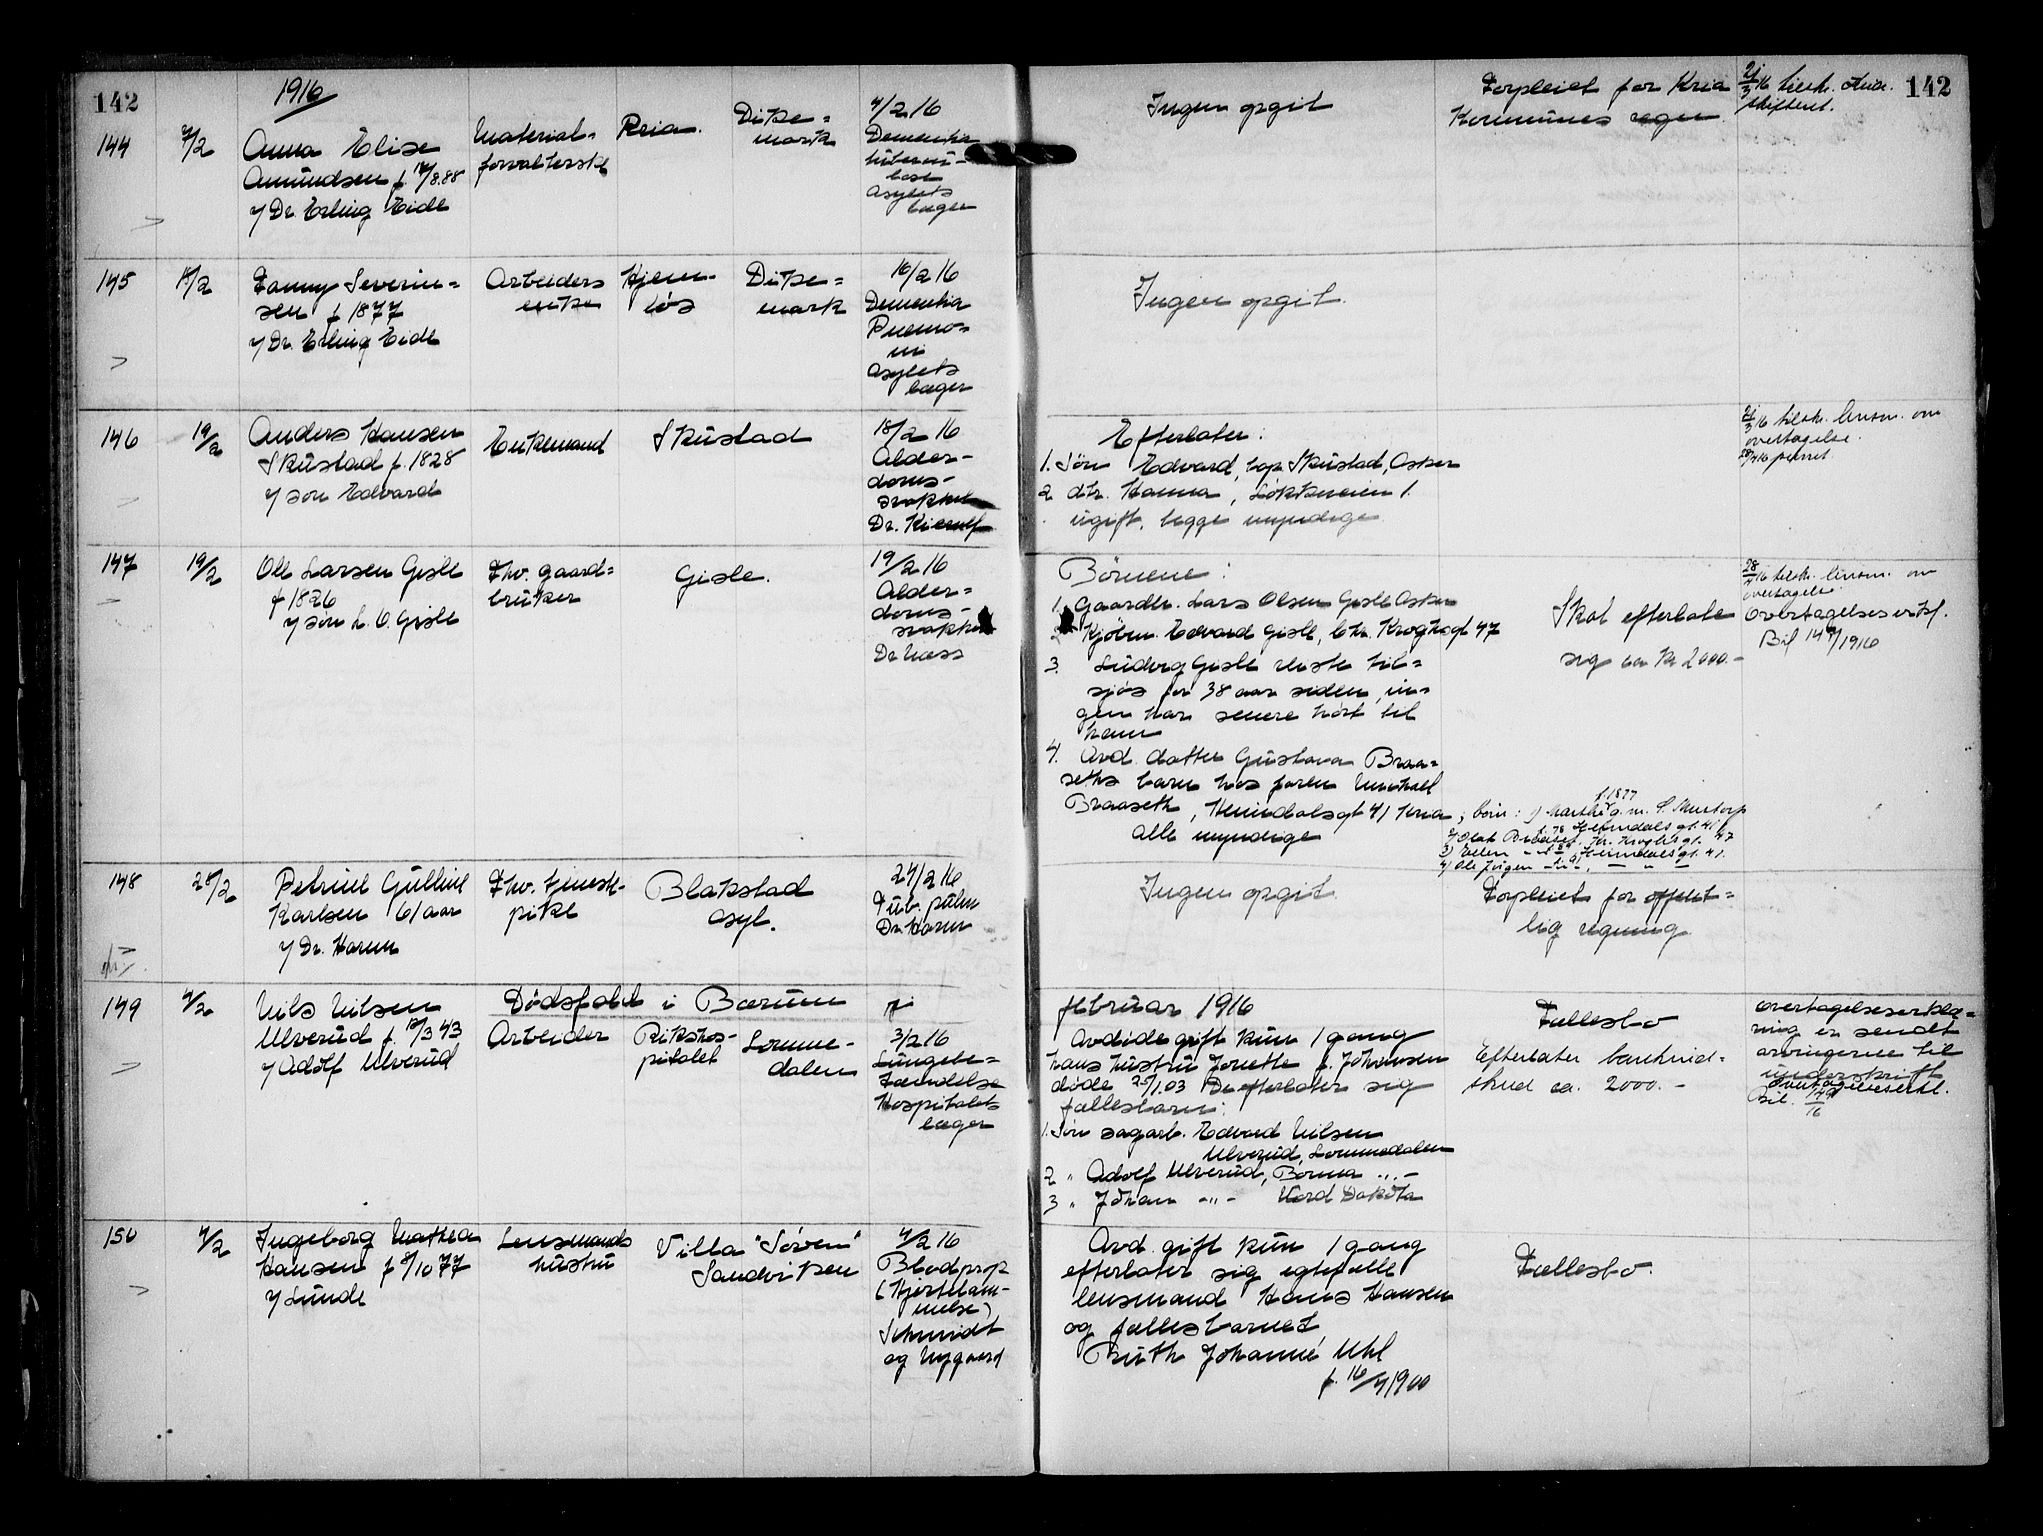 142
1916
144
4/2
Anna Elise
Amundsen f. 14/8.88
v/ Dr. Erling Eide
Material-
forvalterske
Kria.
Dike=
mark
4/2 16
Dementia
tuberku-
lose
asylets
læger
Ingen opgit
Forpleiet for Kria
Kommunes regn.
21/3 16 tilskr. Amn.
skifteret.
142
145
18/2
Fanny Severin=
sen f 1877
v/ Dr. Erling Eide
Arbeiders
enke
Hjem-
løs
Dike=
mark
16/2 16
Dementia
Pnemo-
ni
asylets
læger
Ingen opgit.
146
19/2
Anders Hansen
Skustad f. 1828
v/ søn Edvard
Enkemand
Skustad
18/2 16
Alder-
doms-
svakhet
Dr.
Efterlater:
1. Søn Edvard, bop. Skustad, Asker
2 dtr. Hanna, Løkkeveien 1.
ugift, begge myndige
21/3 16 tilskr. lensm. om
overtagelse.
147
19/2
Ole Larsen Gisle
f 1826
v/ søn L. O. Gisle
Fhv. gaard=
bruker
Gisle.
19/2 16
Alder=
doms-
svakhet
Dr Næss
Børnene:
1. Gaardbr. Lars Olsen Gisle Asker
2. Kjøbm. Edvard Gisle, Chr. Kroghsgt 47
3. Ludvig Gisle reiste til=
sjøs for 38 aar siden, in-
gen har senere hørt til
ham
4. Avd. datter Gustava Braa=
seths barn hos faren Michael
Braaseth, Heimdalsgt 41 Kria; børn: 1) Marthe g. m. S. Mustorp
f. 1877
Heimdalsgt. 41
2) Olaf Braaset, Kr. Kroghsgt. 47
3) Ellen Heimdalsgt. 41.
4) Ole Jørgen
alle myndige
Skal efterlate
sig ca Kr 2000.-
28/3 16 tilskr. lensm. om
overtagelse
Overtagelseserkl.
Bil 147/1916
148
28/2
Petrine Gulline
Karlsen 61 aar
v/ Dr. Harm
Fhv. tjenest-
pike
Blakstad
asyl.
24/2 16
Tub. pulm
Dr. Harm
Ingen opgit.
Forpleiet for offent=
lig regning
149
4/2
Nils Nilsen
Ulverud f. 12/3 43
v/ Adolf Ulverud
Dødsfald i Bærum i februar 1916
Arbeider
Rikshos-
pitalet
Lomme-
dalen
3/2 16
Lungebe=
tændelse
Hospitalets
læger
Avdøde gift kun 1 gang
hans hustru Jonette f. Johansen
døde 25/1.03 De efterlater sig
fællesbarn:
1. Søn sagarb. Edvard Nilsen
Ulverud, Lommedalen
2 " Adolf Ulverud, Bærum
3 " Johan -"- Nord Dakota
Fællesbo
Efterlater bankind-
skud ca. 2000.-
overtagelseserklæ=
ring er sendt
arvingerne til
underskrift
Overtagelseserkl.
bil. 149/16
150
4/2
Ingeborg Mathea
Hansen f 8/10 77
v/ Lunde
Lensmands
hustru
Villa "Solvei"
Sandviken
4/2 16
Blodprop
(Hjertelam-
melse)
Schmidt
og Nygaard
Avd. gift kun 1 gang
efterlater sig egtefælle
lensmand Hans Hansen
og fællesbarnet,
Ruth Johanne Uhl
f. 16/4 1900
Fællesbo.